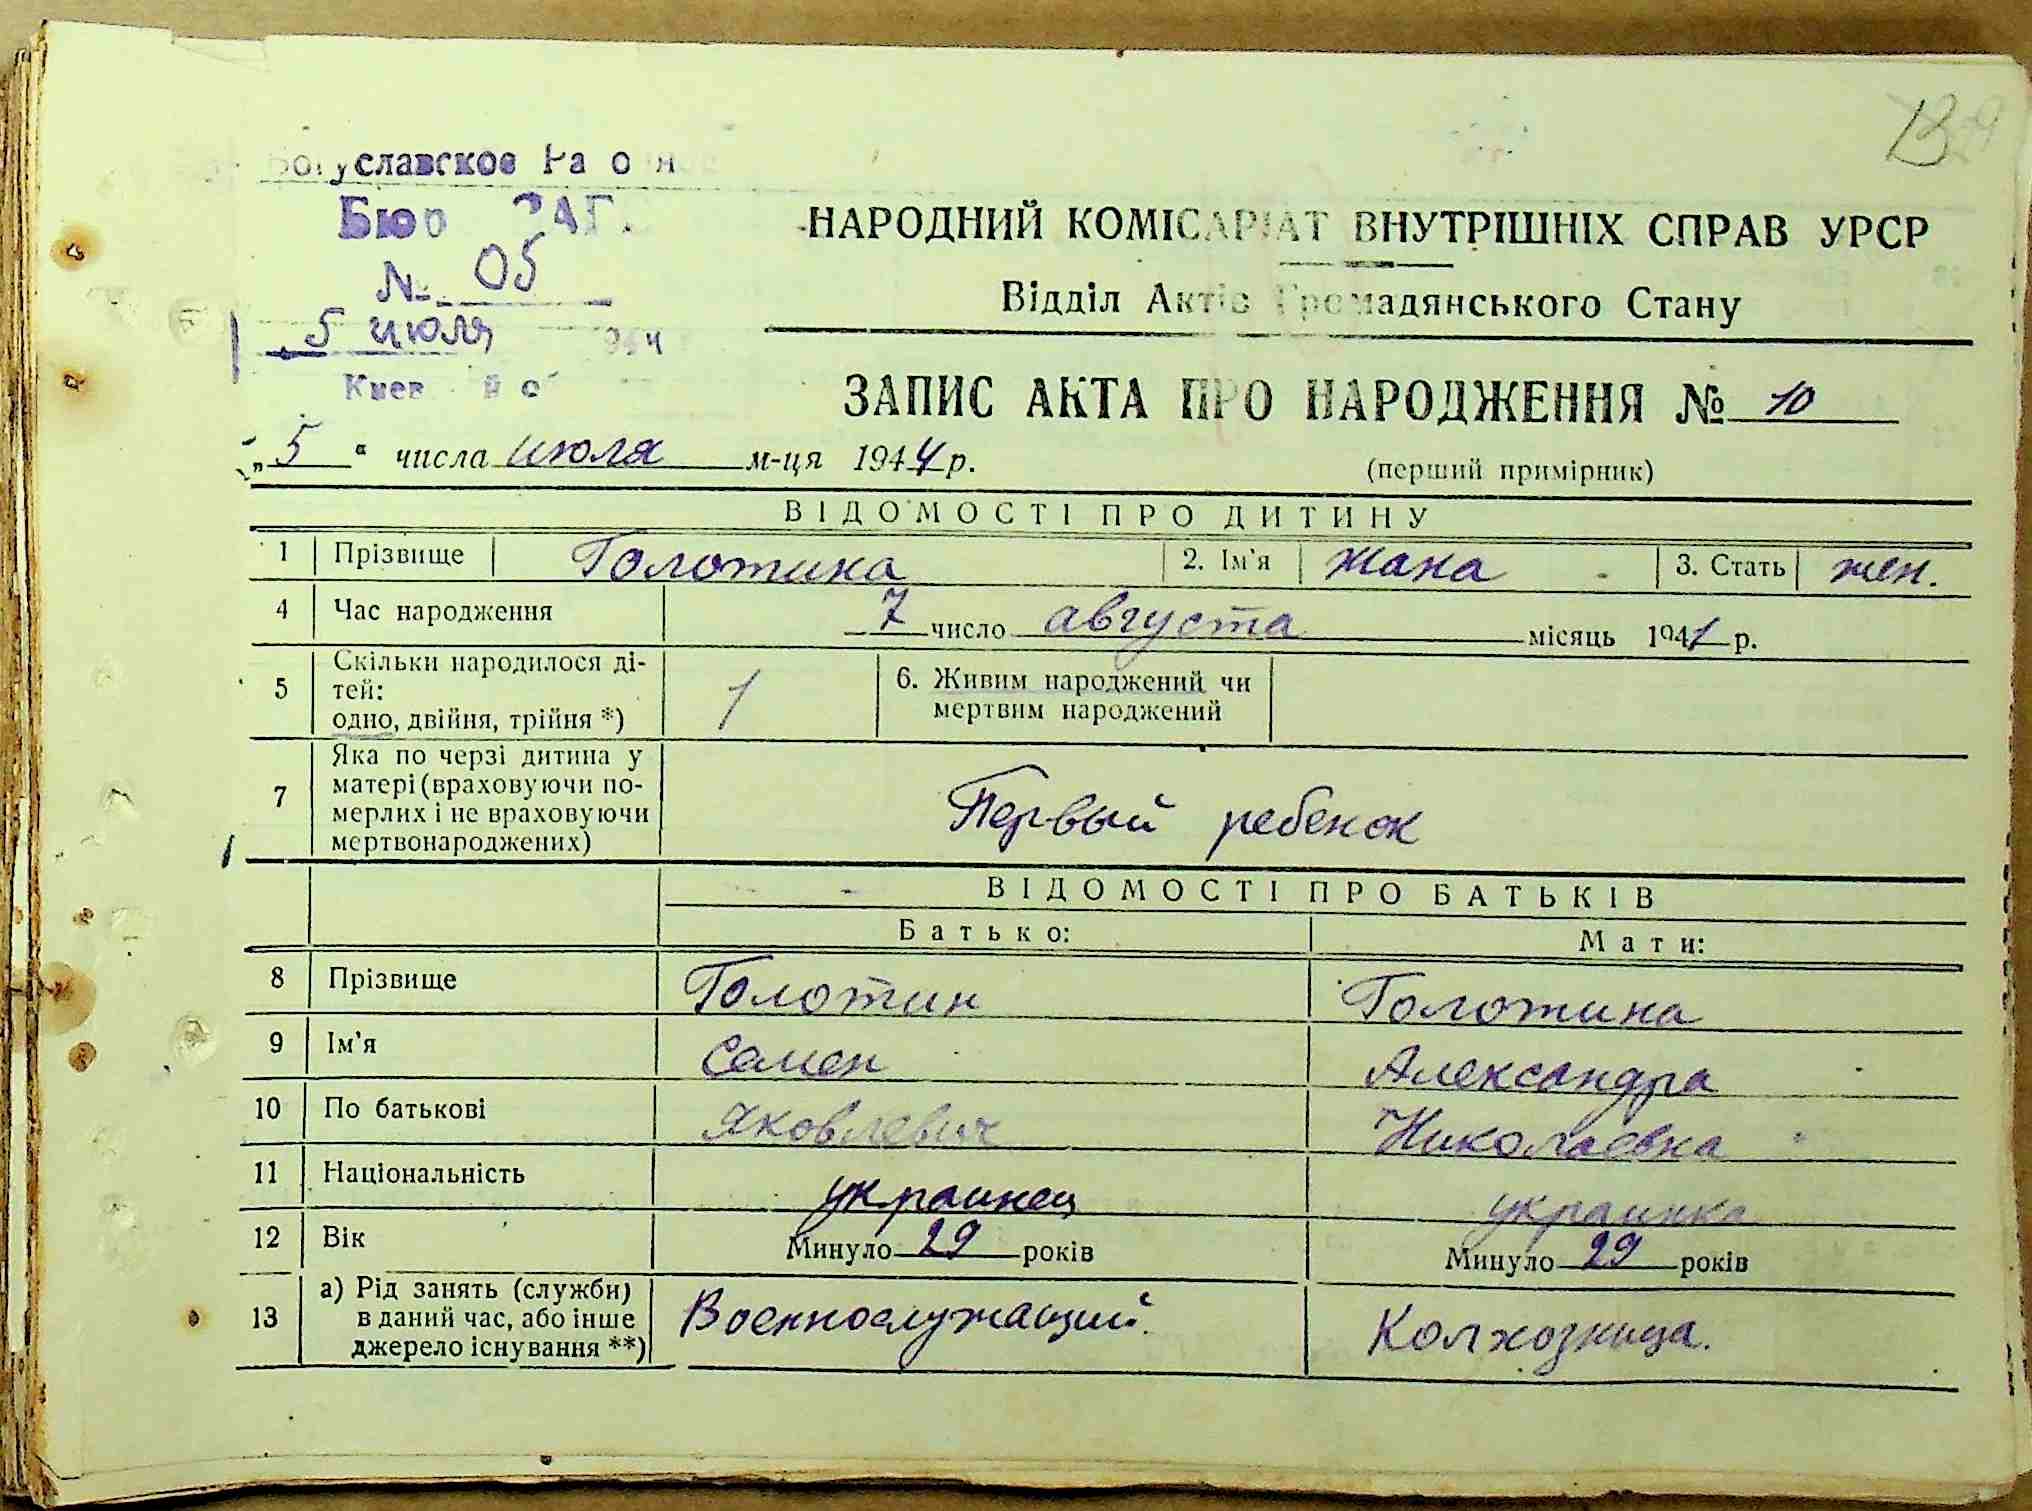 Богуславское Район
Бюро ЗАГС
№ 05
5 июля 1944
Киев й об
НАРОДНИЙ КОМІСАРІАТ ВНУТРІШНІХ СПРАВ УРСР
Відділ Актів Громадянського Стану
ЗАПИС АКТА ПРО НАРОДЖЕННЯ № 10
„5“ числа июля м-ця 1944 р.
(перший примірник)
ВІДОМОСТІ ПРО ДИТИНУ
1 Прізвище Голотина 2. Ім'я Жана 3. Стать жен.
4 Час народження 7 число августа місяць 1941 р.
5 Скільки народилося ді-
тей:
одно, двійня, трійня *) 1
6. Живим народжений чи
мертвим народжений
7 Яка по черзі дитина у
матері (враховуючи по-
мерлих і не враховуючи
мертвонароджених)
Первый ребенок
ВІДОМОСТІ ПРО БАТЬКІВ
Батько: Мати:
8 Прізвище Голотин Голотина
9 Ім'я Семен Александра
10 По батькові Яковлевич Николаевна
11 Національність украинец украинка
12 Вік Минуло 29 років Минуло 29 років
13 а) Рід занять (служби)
в даний час, або інше
джерело існування **)
Военнослужащий. Колхозница.